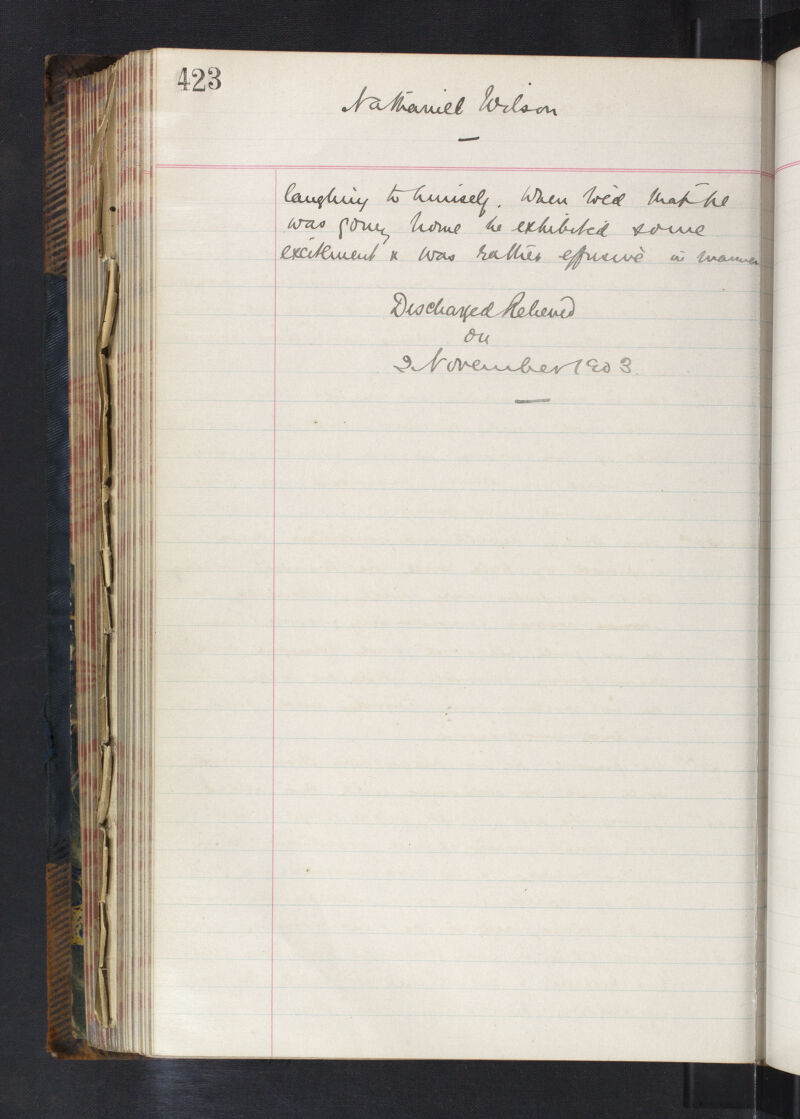 423
Nathaniel Wilson
laughing to himself. When told that he
was going home he exhibited some
excitement & was rather effusive in manner
Discharged Relieved
on
2 November 1903.